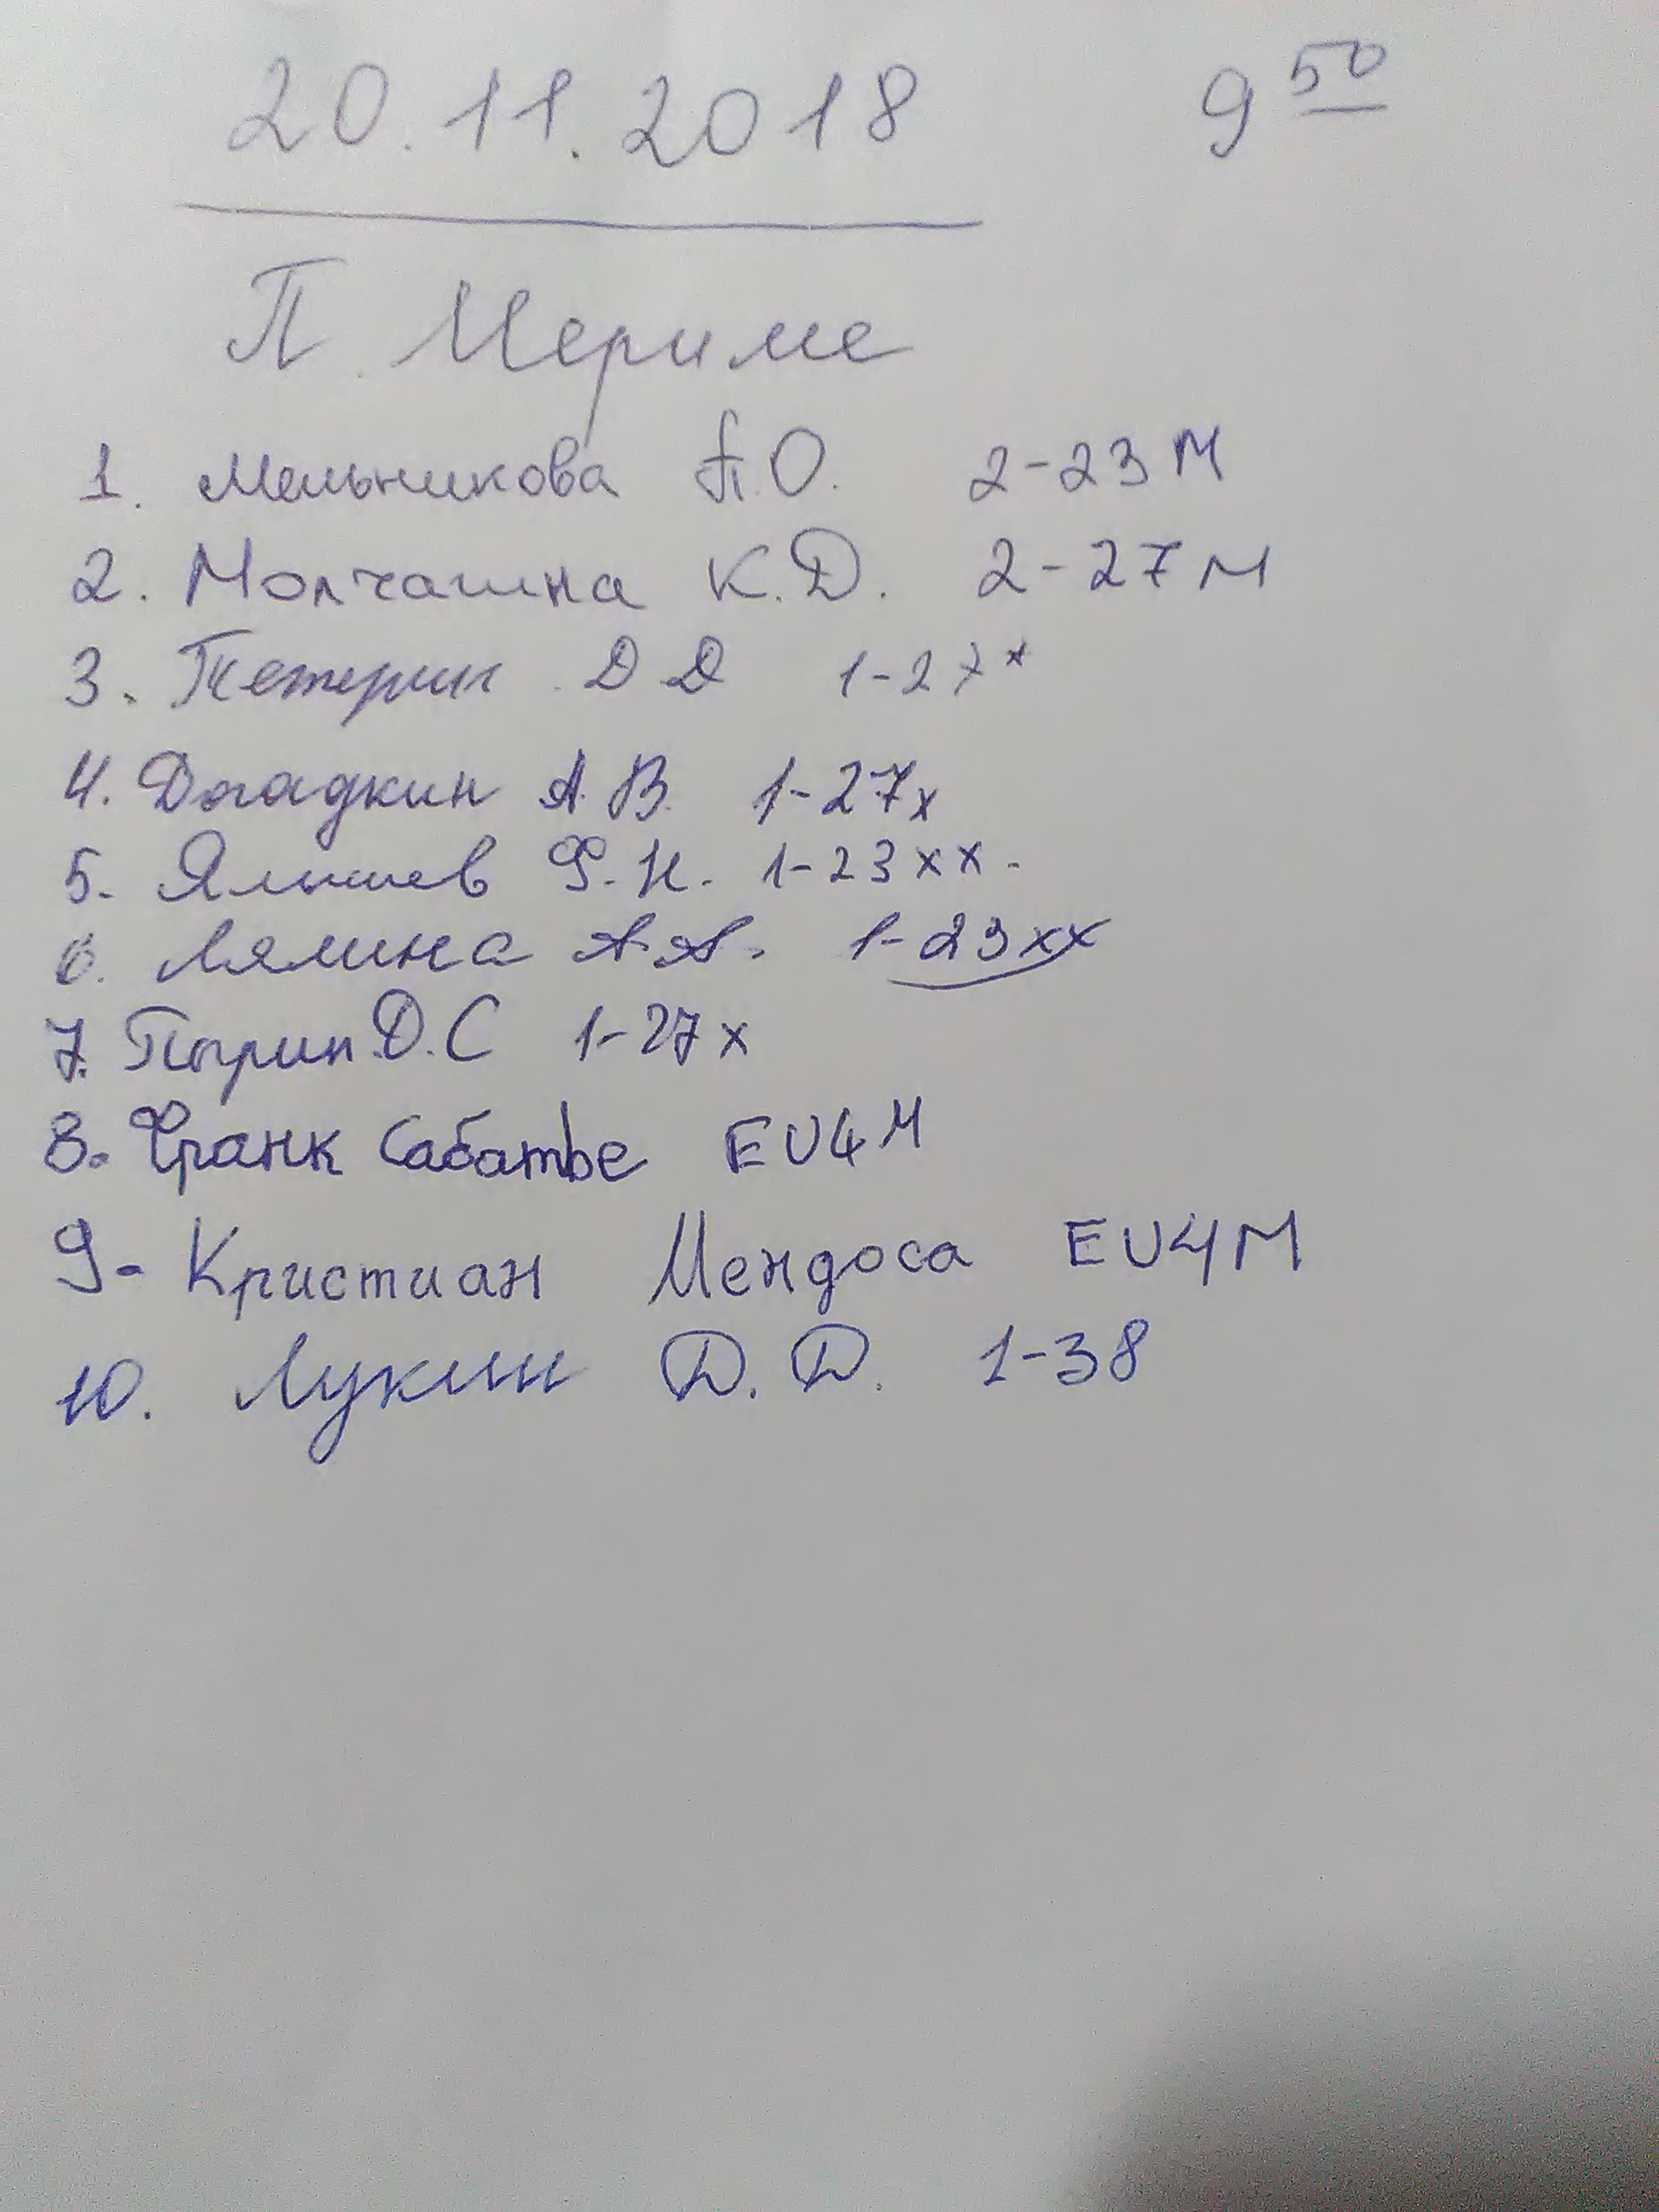 20.11.2018 9 50
П. Мериме
1. Мельникова А.О. 2-23 М
2. Молчашна К.Д. 2-27 М
3. Тетерин Д Д 1-27 х
4. Догадкин А.В. 1-27х
5. Ялышев Ф.Н. 1-23 хх.
6. Лялина А.А. 1-23хх
7. Д.С 1-27 х
8. Франк Сабатье EU4 М
9- Кристиан Мендоса EU4М
10. Лукин Д.Д. 1-38